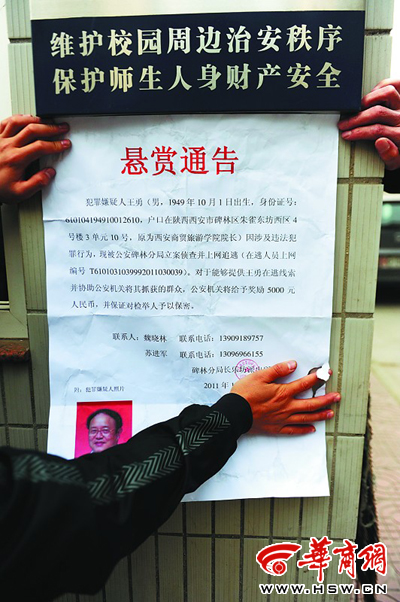 维护校园周边治安秩序
保护师生人身财产安全
悬赏通告
犯罪嫌疑人王勇（男，1949年10月1日出生，身份证号：
610104194910012610，户口在陕西西安市碑林区朱雀东坊西区4
号楼3单元10号，原为西安商贸旅游学院院长）因涉及违法犯
罪行为，现被公安碑林分局立案侦查并上网追逃（在逃人员上网
编号 T6101031039992011030039）。对于能够提供王勇在逃线索
并协助公安机关将其抓获的群众，公安机关将给予奖励 5000 元
人民币，并保证对检举人予以保密。
联系人：魏晓林 联系电话：13909189757
苏进军 联系电话：13096966155
碑林分局长乐坊派出所
2011年
附：犯罪嫌疑人照片
华商网
WWW.HSW.CN